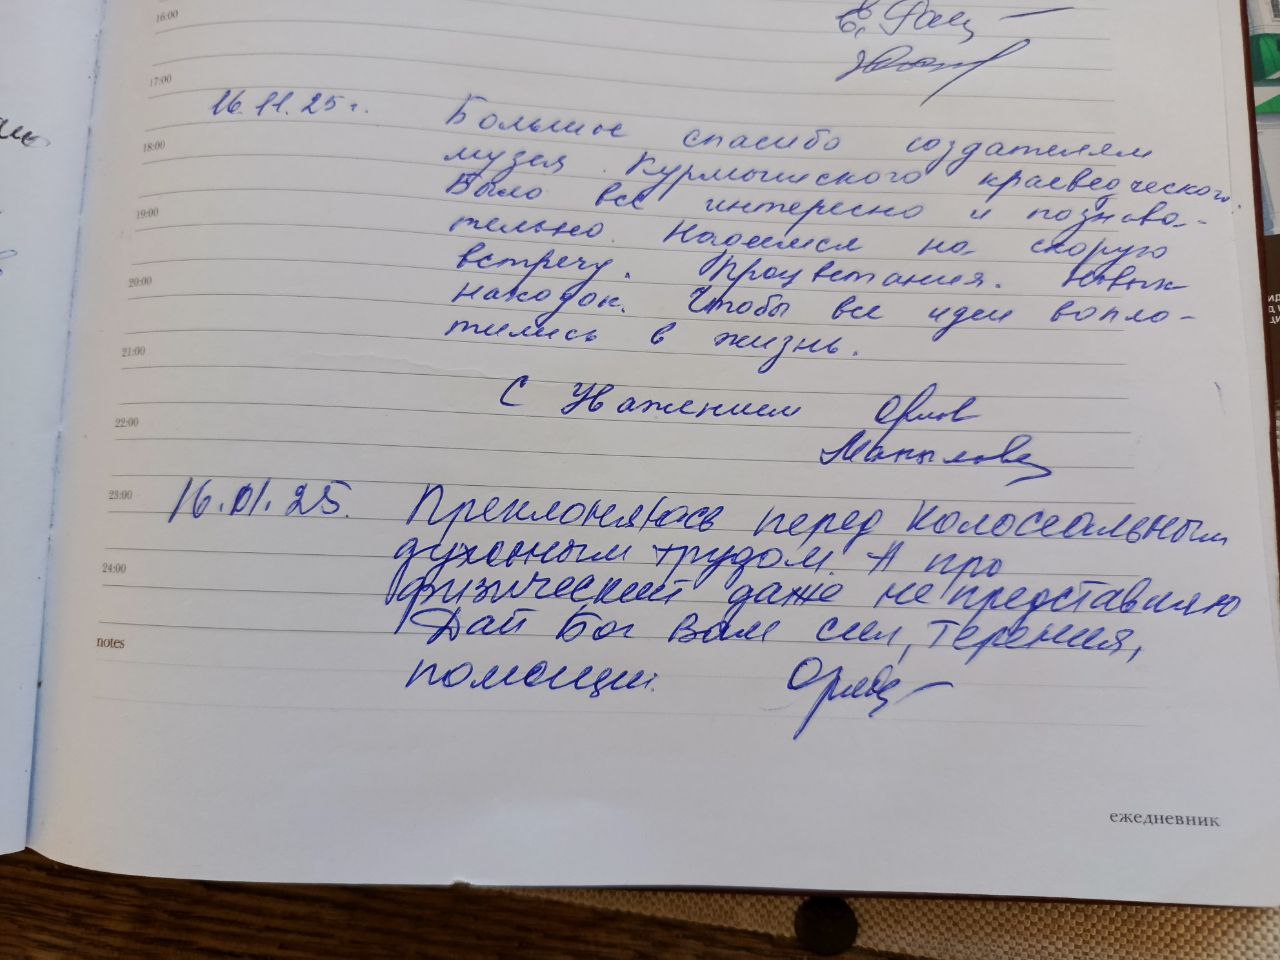 16:00
17:00
16.11.25 г. Большое спасибо создателям
18:00
музея Курмышского краеведческого.
Было все интересно и познова-
19:00
тельно. Надеемся на скорую
встречу. Процветания. Новых
20:00
находок. Чтобы все идеи вопло-
тились в жизнь.
21:00
С Уважением Орлов
22:00
23:00
16.01.25. Преклоняюсь перед колоссальным
духовным трудом. А про
24:00
физический даже не представляю
Дай Бог Вам сил, терпения,
notes
помощи.
ежедневник